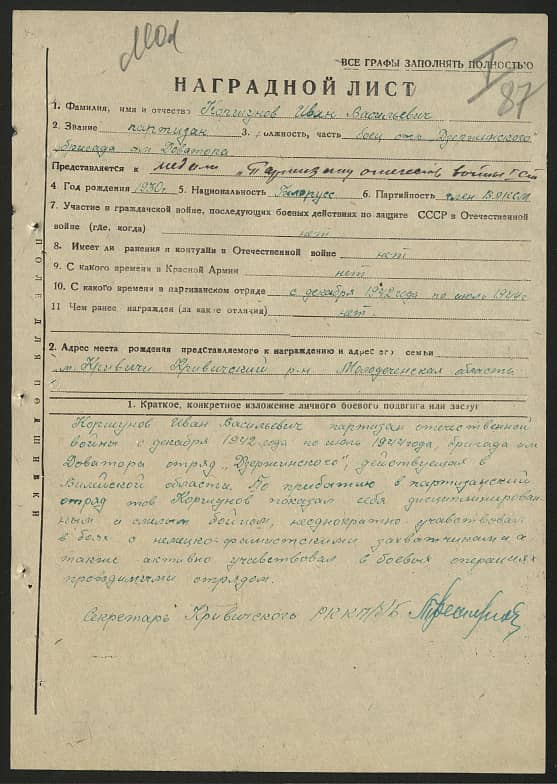 ВСЕ ГРАФЫ ЗАПОЛНЯТЬ ПОЛНОСТЬЮ
87
НАГРАДНОЙ ЛИСТ
1. Фамилия, имя и отчество Коршунов Иван Васильевич
2. Звание партизан 3. должность, часть боец отр. Дзержинского
бригада им Доватора
Представляется к медали „Партизану отечеств войны I ст
4 Год рождения 1930г. 5. Национальность Белорусс 6. Партийность член ВЛКСМ
7. Участие в гражданской войне, последующих боевых действиях по защите СССР в Отечественной
войне (где, когда) нет
8. Имеет ли ранения и контузии в Отечественной войне нет
9. С какого времени в Красной Армии нет
10. С какого времени в партизанском отряде с декабря 1942 года по июль 1944г.
11 Чем ранее награжден (за какие отличия) нет.
2. Адрес места рождения представляемого к награждению и адрес его семьи
м. Кривичи Кривичский р-н Молодеченская область
1. Краткое, конкретное изложение личного боевого подвига или заслуг
Коршунов Иван Васильевич партизан отечественной
войны с декабря 1942 года по июль 1944 года, бригада им
Доватора отряд „Дзержинского", действующая в
Вилейской области. По прибытию в партизанский
отряд тов Коршунов показал себя дисциплинирован-
ным и смелым бойцом, неоднократно учавствовал
в боях с немецко-фашистскими захватчиками а
также активно учавствовал в боевых операциях
проводимыми отрядом.
Секретарь Кривичского РК КП/б/Б
ПОЛЕ ДЛЯ ПОДШИВКИ